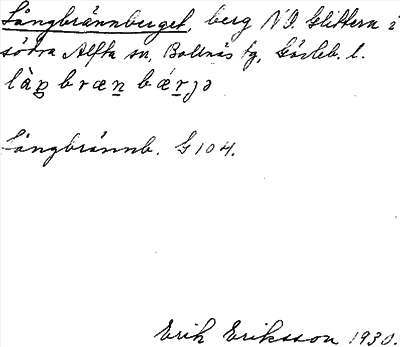 Långbrännberget, berg N.O. Glittern i
södra Alfta sn, Bollnäs tg, Gävleb. l.
làŋ bræn bǽrjə
Långbrännb. G 104.
Erik Eriksson 1930.